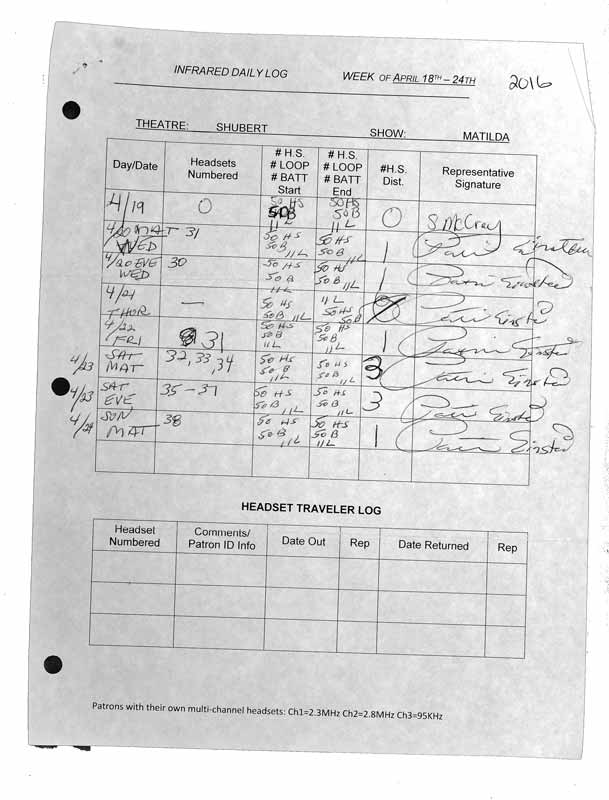 INFRARED DAILY LOG WEEK OF APRIL 18TH – 24TH 2016
THEATRE: SHUBERT SHOW: MATILDA
Day/Date
Headsets
Numbered
# H.S.
# LOOP
# BATT
Start
# H.S.
# LOOP
# BATT
End
#H.S.
Dist.
Representative
Signature
4/19 0 50 HS 50B 11L 50HS 50B 11L 0 S. McCray
4/20 MAT WED 31 50 HS 50B 11L 50 HS 50B 11L 1
4/20 EVE WED 30 50 HS 50B 11L 50 HS 50B 11L 1
4/21 THUR — 50 HS 50B 11L 11L 50HS 50B
4/22 FRI 31 50 HS 50B 11L 50 HS 50B 11L 1
4/23 SAT MAT 32, 33, 34 50 HS 50B 11L 50 HS 50B 11L 3
4/23 SAT EVE 35 – 37 50 HS 50B 11L 50 HS 50B 11L 3
4/24 SUN MAT 38 50 HS 50B 11L 50 HS 50B 11L 1
HEADSET TRAVELER LOG
Headset
Numbered
Comments/
Patron ID Info
Date Out
Rep
Date Returned
Rep
Patrons with their own multi-channel headsets: Ch1=2.3MHz Ch2=2.8MHz Ch3=95KHz